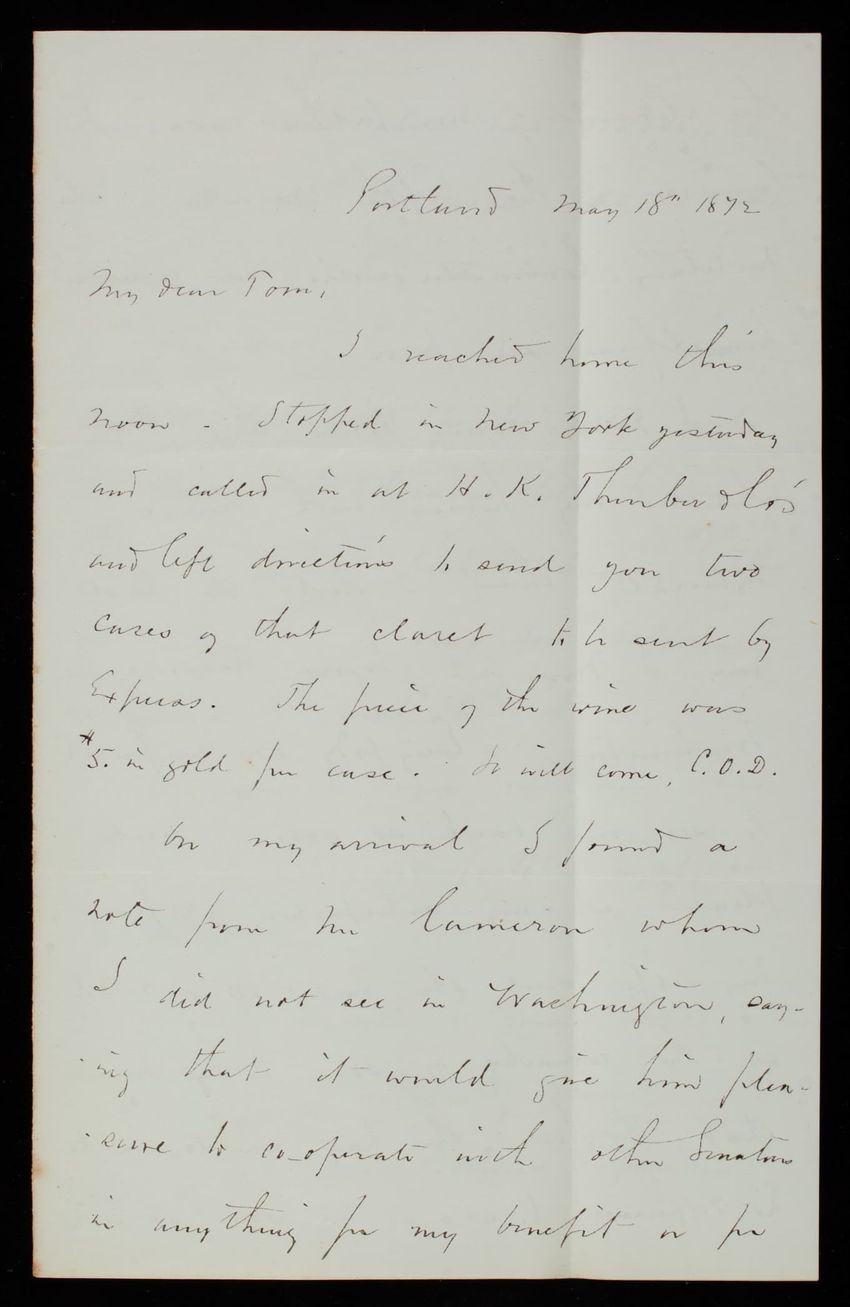 Portland May 18th 1872
My dear Tom,
I reached home this
noon - Stopped in New York yesterday
and called in at H. K. Thurber & Co's
and left directions to send you two
cases of that claret to be sent by
Express. The price of the wine was
$5. in gold per case. It will come, C.O.D.
On my arrival I found a
note from Mr Cameron whom
I did not see in Washington, say-
ing that it would give him plea-
sure to co-operate with other Senators
in anything for my benefit or for